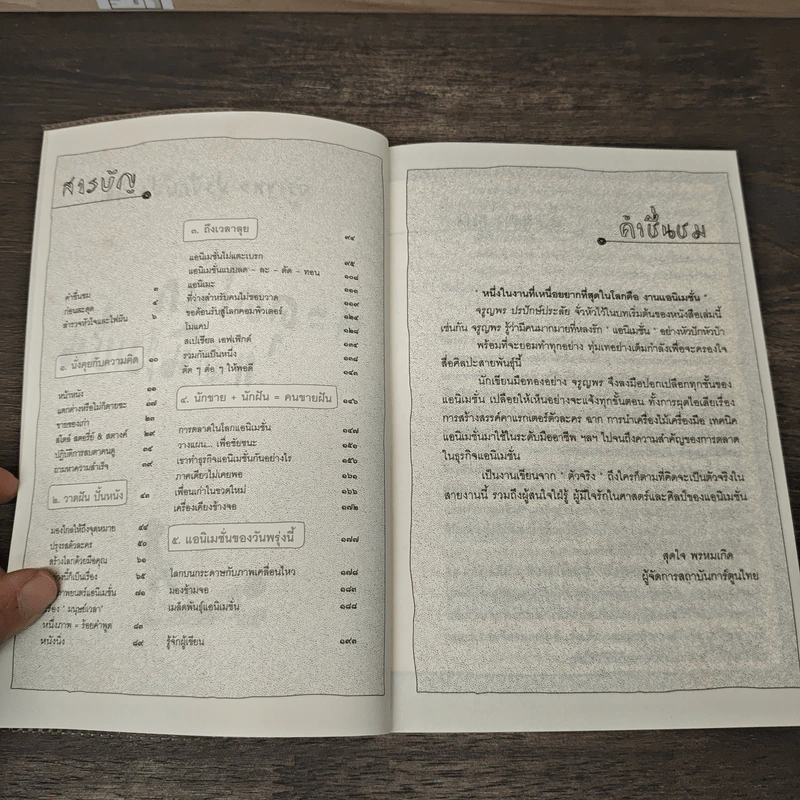 สารบัญ
คำชื่นชม ๓
ก่อนละสุด ๔
สำรวจหัวใจและไฟฝัน ๖
๑. นั่งคุยกับความคิด ๑๐
หน้าหนัง ๑๑
แตกต่างหรือไม่ก็ตายซะ ๑๗
ขายของเก่า ๒๓
สไตล์ สตอรี่ & สตางค์ ๒๙
ปฏิบัติการสบตาคนดู ๓๔
ถามหาความสำเร็จ ๓๙
๒. วาดฝัน ปั้นหนัง ๔๓
มองไกลให้ถึงจุดหมาย ๔๔
ปรุงรสตัวละคร ๕๐
สร้างโลกด้วยมือคุณ ๖๑
นี้ก็เป็นเรื่อง ๖๕
ภาพยนตร์แอนิเมชั่น ๗๑
เรื่อง ' มนุษย์เวลา'
หนึ่งภาพ = ร้อยคำพูด ๘๓
หนังนิ่ง ๘๙
๓. ถึงเวลาลุย ๙๔
แอนิเมชั่นไม่แตะเบรก ๙๕
แอนิเมชั่นแบบลด - ละ - ตัด - ทอน ๑๐๘
แอนิเมะ ๑๑๑
ที่ว่างสำหรับคนไม่ชอบวาด ๑๑๙
ขอต้อนรับสู่โลกคอมพิวเตอร์ ๑๒๔
โมแคป ๑๒๘
สเปเชียล เอฟเฟ็กต์ ๑๓๔
รวมกันเป็นหนึ่ง ๑๓๘
ตัด ๆ ต่อ ๆ ให้พอดี ๑๔๓
๔. นักขาย + นักฝัน = คนขายฝัน ๑๔๖
การตลาดในโลกแอนิเมชั่น ๑๔๗
วางแผน... เพื่อชัยชนะ ๑๕๑
เขาทำธุรกิจแอนิเมชั่นกันอย่างไร ๑๕๖
ภาคเดียวไม่เคยพอ ๑๖๑
เพื่อนเก่าในขวดใหม่ ๑๖๖
เครื่องเคียงข้างจอ ๑๗๒
๕. แอนิเมชั่นของวันพรุ่งนี้ ๑๗๗
โลกบนกระดาษกับภาพเคลื่อนไหว ๑๗๘
มองข้ามจอ ๑๘๓
เมล็ดพันธุ์แอนิเมชั่น ๑๘๘
รู้จักผู้เขียน ๑๙๓
คำชื่นชม
' หนึ่งในงานที่เหนื่อยยากที่สุดในโลกคือ งานแอนิเมชั่น '
จรูญพร ปรปักษ์ประลัย จั่วหัวไว้ในบทเริ่มต้นของหนังสือเล่มนี้
เช่นกัน จรูญพร รู้ว่ามีคนมากมายที่หลงรัก ' แอนิเมชั่น ' อย่างหัวปักหัวปำ
พร้อมที่จะยอมทำทุกอย่าง ทุ่มเทอย่างเต็มกำลังเพื่อจะครองใจ
สื่อศิลปะสายพันธุ์นี้
นักเขียนมือทองอย่าง จรูญพร จึงลงมือปอกเปลือกทุกชั้นของ
แอนิเมชั่น เปลือยให้เห็นอย่างจะแจ้งทุกขั้นตอน ทั้งการผุดไอเดียเรื่อง
การสร้างสรรค์คาแรกเตอร์ตัวละคร ฉาก การนำเครื่องไม้เครื่องมือ เทคนิค
แอนิเมชั่นมาใช้ในระดับมืออาชีพ ฯลฯ ไปจนถึงความสำคัญของการตลาด
ในธุรกิจแอนิเมชั่น
เป็นงานเขียนจาก ' ตัวจริง ' ถึงใครก็ตามที่คิดจะเป็นตัวจริงใน
สายงานนี้ รวมถึงผู้สนใจใฝ่รู้ ผู้มีใจรักในศาสตร์และศิลป์ของแอนิเมชั่น
สุดใจ พรหมเกิด
ผู้จัดการสถาบันการ์ตูนไทย